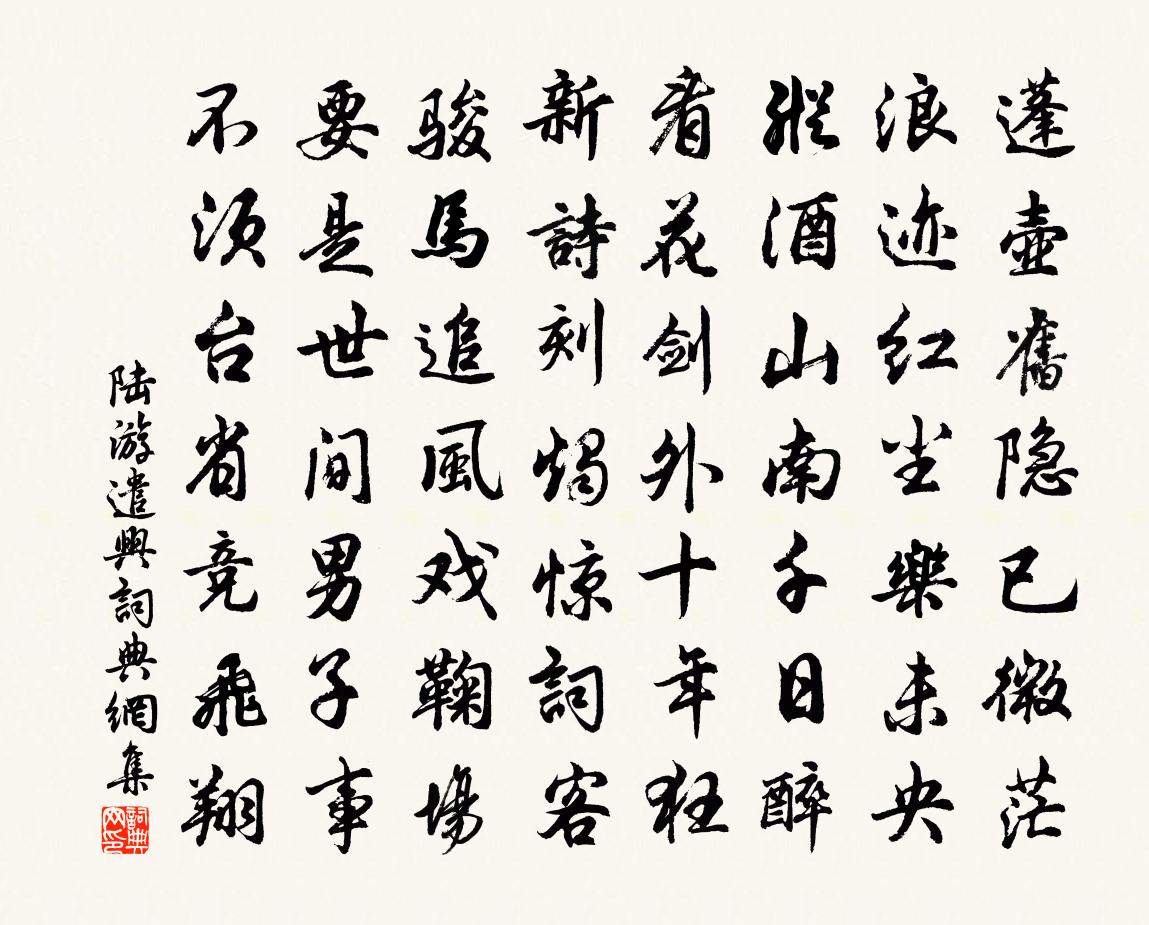 蓬壺舊隐已微茫
浪迹红尘樂未央
縱酒山南千日醉
看花剑外十年狂
新詩刻燭惊詞客
骏馬追風戏鞠場
要是世间男子事
不须台省竞飛翔
陆游遣興詞典網集
詞典网印